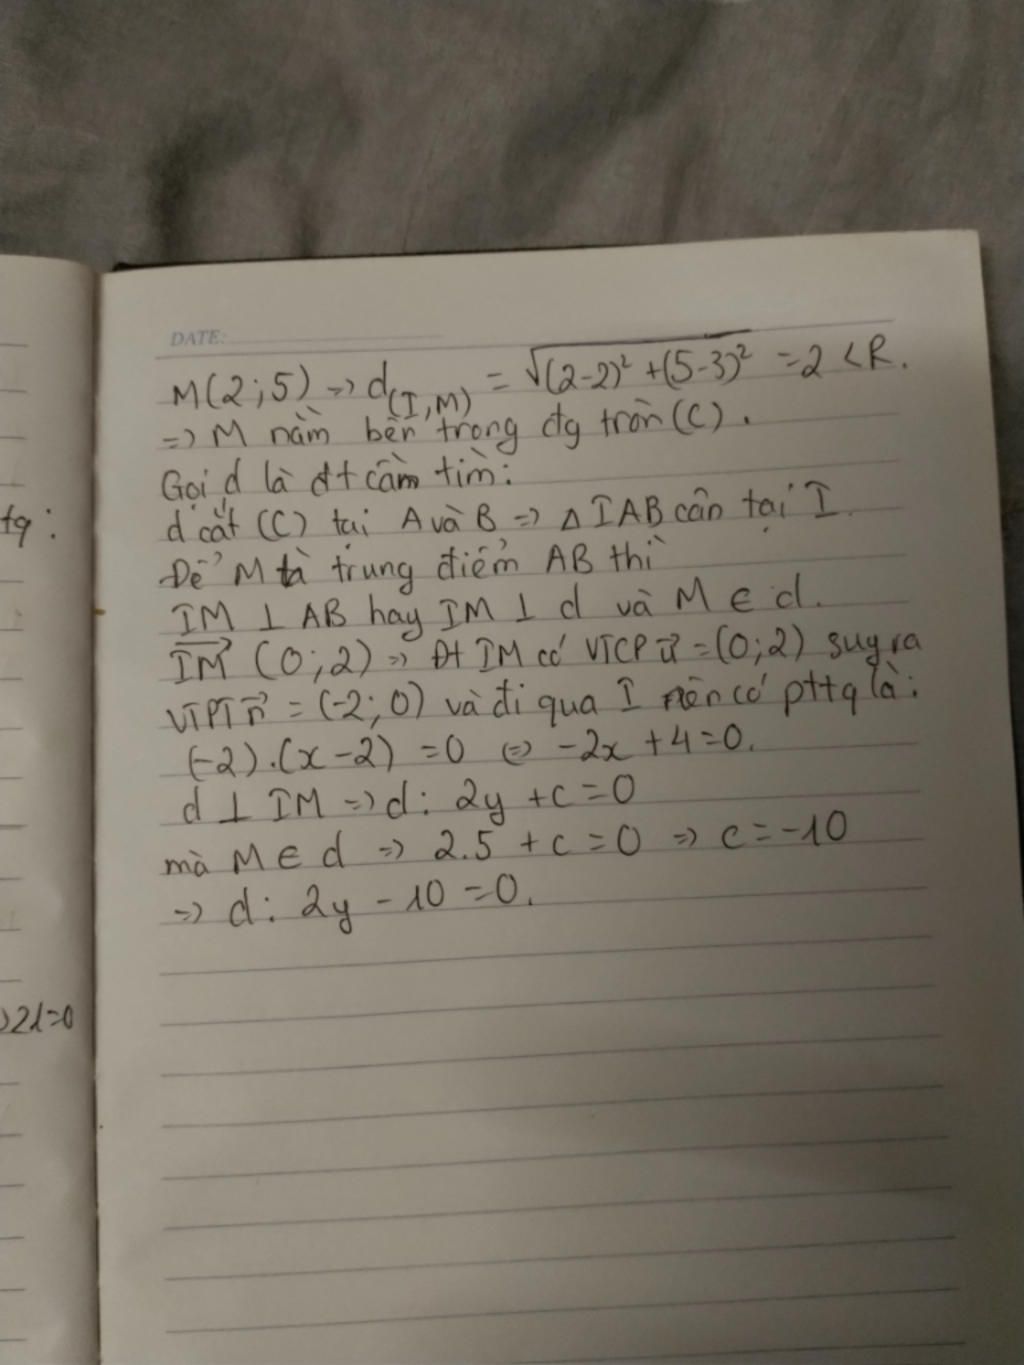 tq:
)2d=0
DATE:
M(2;5) => d(I,M) = √(2-2)² + (5-3)² = 2 < R.
=> M nằm bên trong đg tròn (C).
Gọi d là đt cần tìm:
d cắt (C) tại A và B => Δ IAB cân tại I.
Để M là trung điểm AB thì
IM ⊥ AB hay IM ⊥ d và M ∈ d.
IM→ (0;2) => Đt IM có VTCP u→ = (0;2) suy ra
VTPT n→ = (-2;0) và đi qua I nên có pttq là:
(-2).(x-2) = 0 <=> -2x + 4 = 0.
d ⊥ IM => d: 2y + c = 0
mà M ∈ d => 2.5 + c = 0 => c = -10
=> d: 2y - 10 = 0.